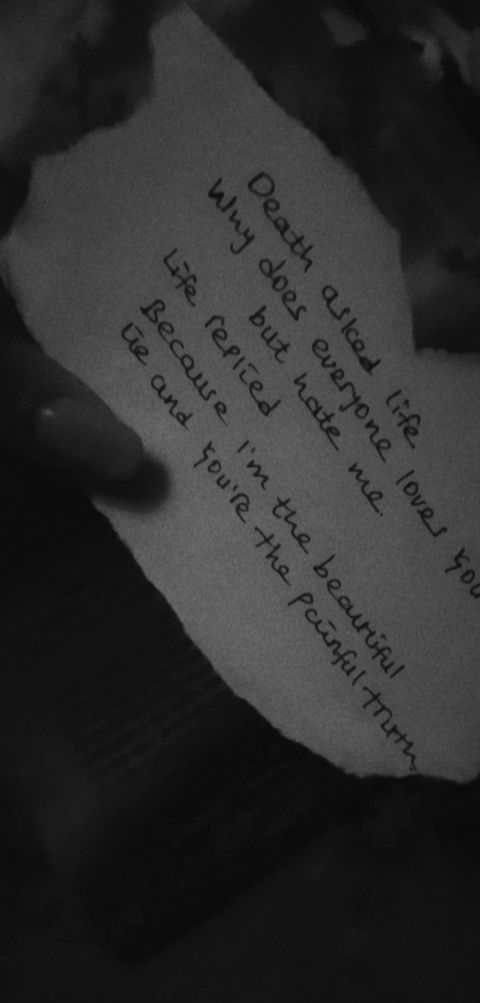 Death asked life
Why does everyone loves you
but hate me.
Life replied
Because I'm the beautiful
lie and you're the painful truth.